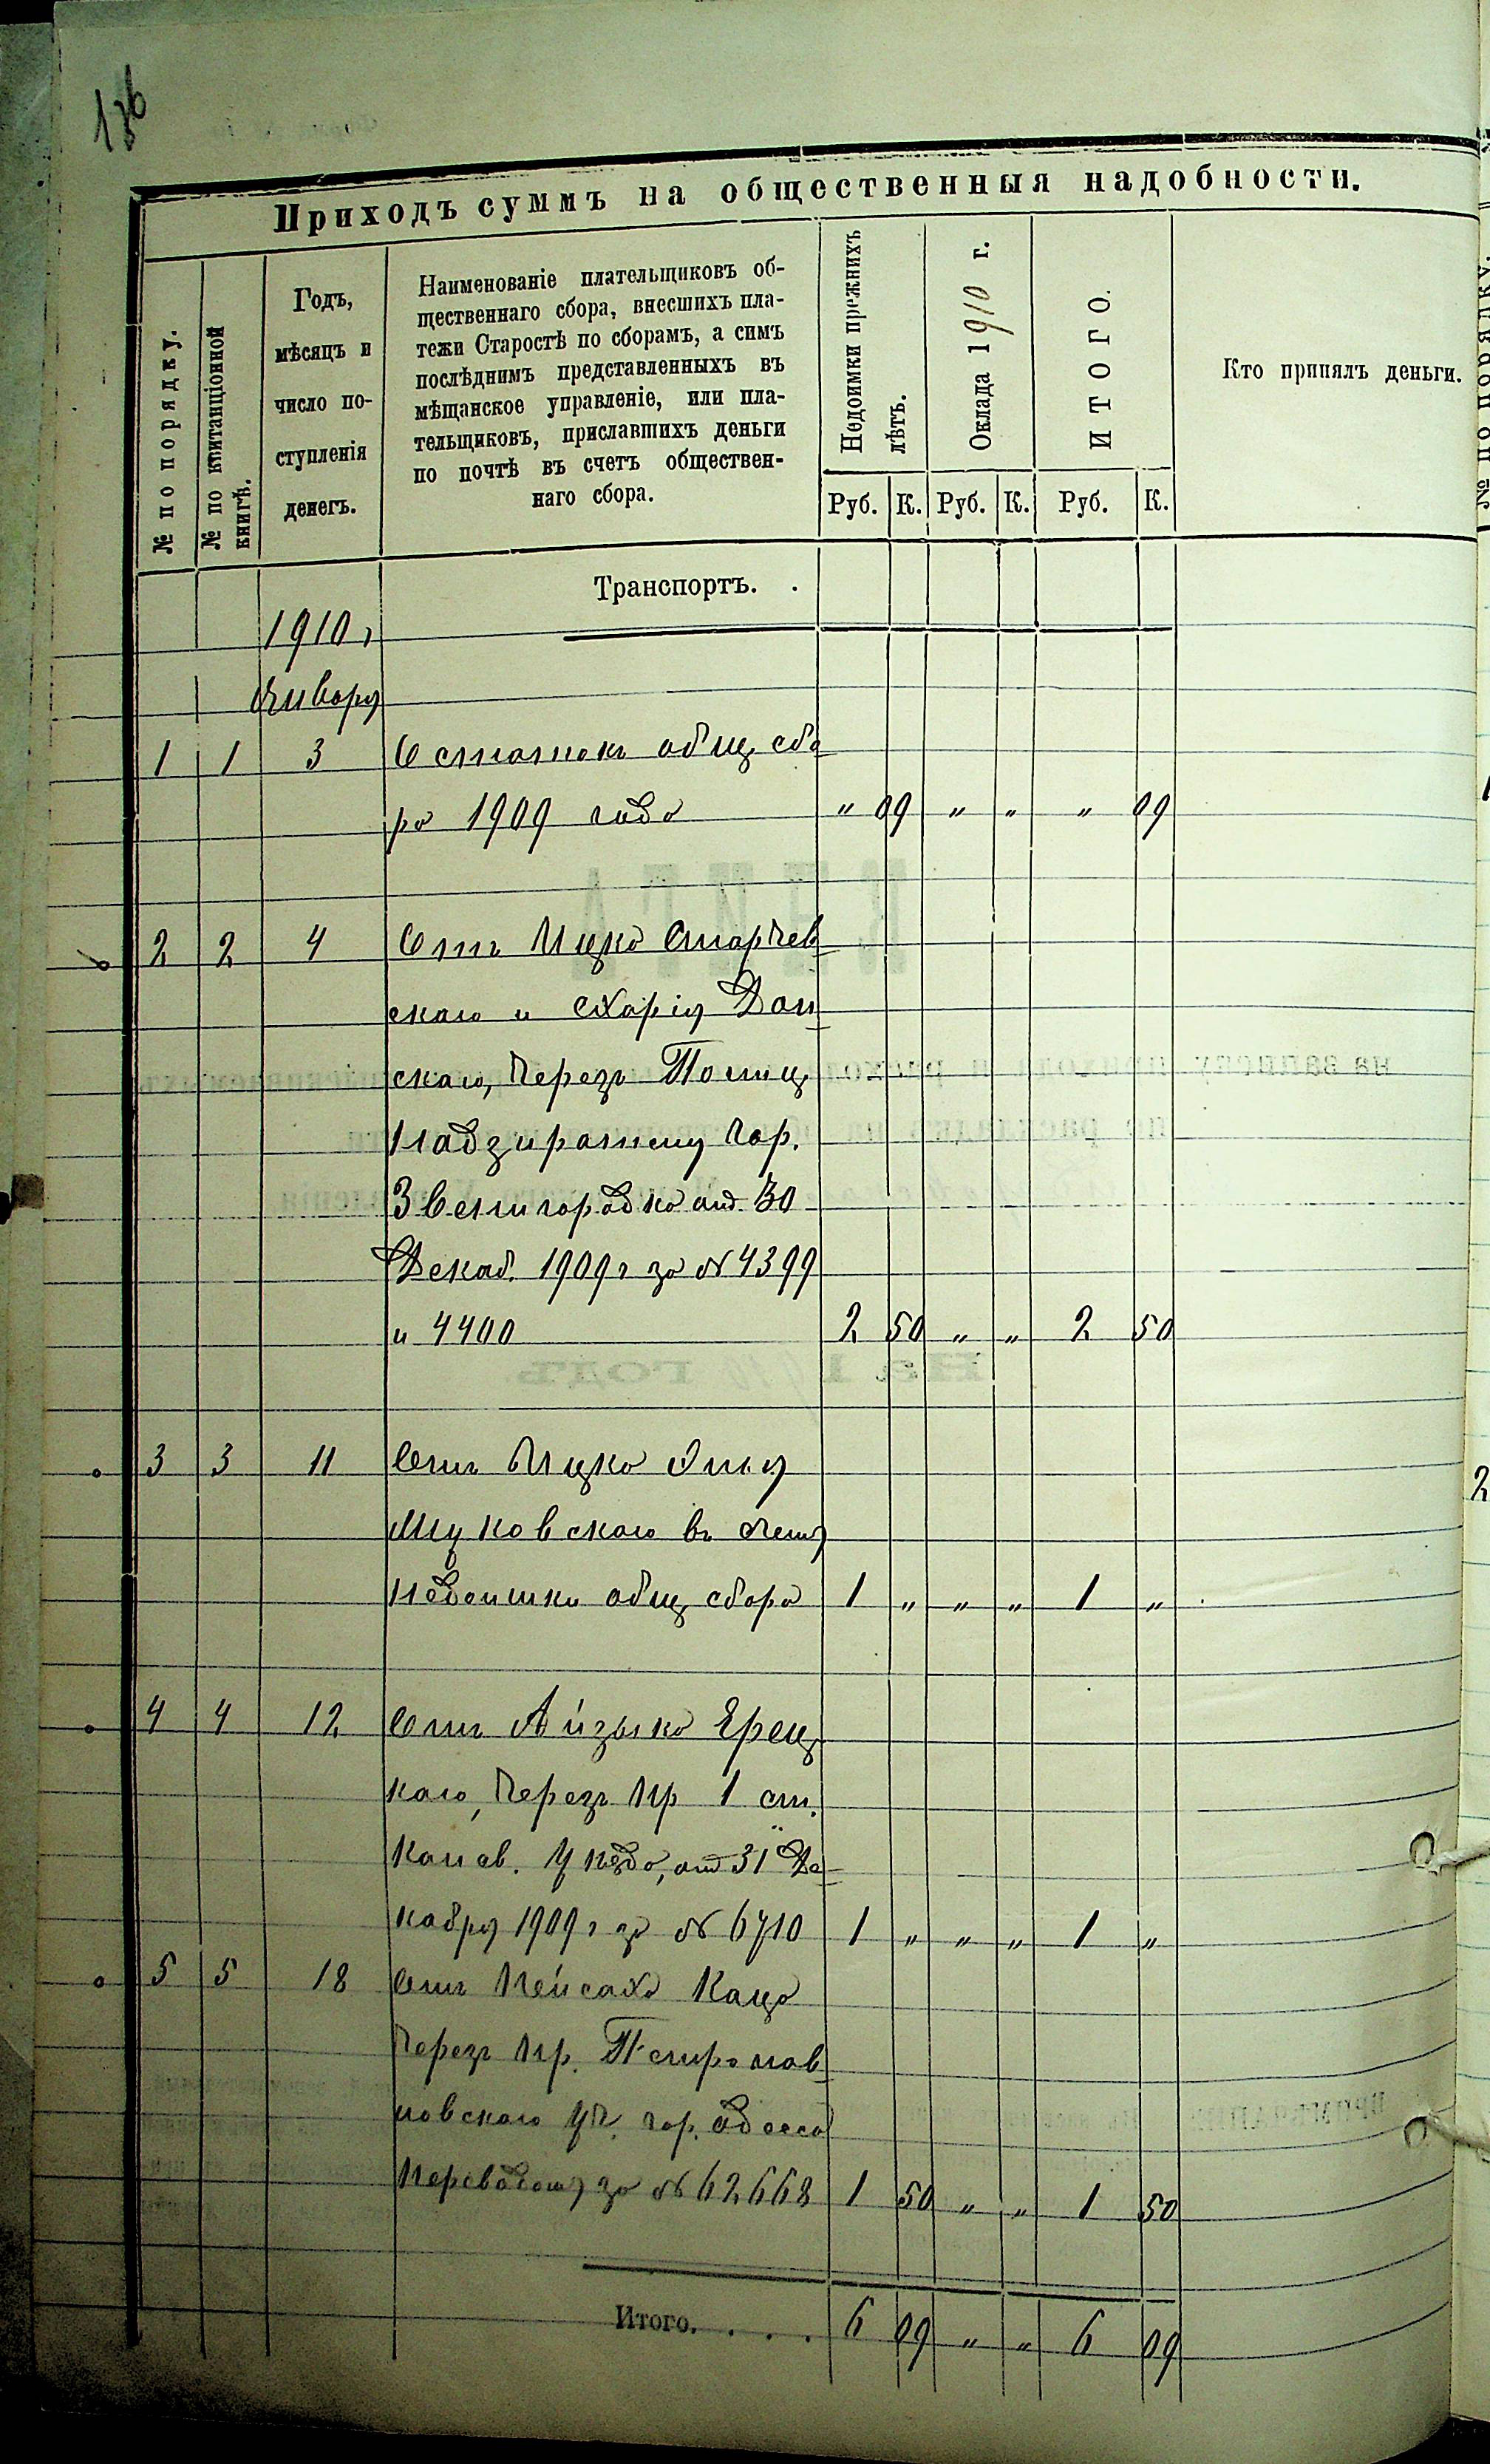 136
Приходъ суммъ на общественныя надобности.
№ по порядку.
№ по квитанціонной книгѣ.
Годъ,
мѣсяцъ и
число по-
ступленія
денегъ.
Наименованіе плательщиковъ об-
щественнаго сбора, внесшихъ пла-
тежи Старостѣ по сборамъ, а симъ
послѣднимъ представленныхъ въ
мѣщанское управленіе, или пла-
тельщиковъ, приславшихъ деньги
по почтѣ въ счетъ обществен-
наго сбора.
Недоимки прежнихъ лѣтъ.
Оклада 1910 г.
ИТОГО.
Кто принялъ деньги.
Руб. К. Руб. К. Руб. К.
Транспортъ. .
1910 г
Января
1 1 3 Остатокъ общ. сбо
ра 1909 года " 09 " " " 09
2 2 4 Отъ Ицка
скаго и
скаго, Через Полиц
Надзирателя гор.
Звенигородка отъ 30
Декаб. 1909 г за № 4399
и 4400 2 50 " " 2 50
3 3 11 Отъ Ицка
въ счетъ
Недоимки общ. сбора 1 " " " 1 "
4 4 12 Отъ Айзыка Ерец
каго, Через Пр 1 ст.
Канев. Уѣзда, отъ 31 Де
кабря 1909 г за № 6710 1 " " " 1 "
5 5 18 Отъ Пейсаха Каца
Через Пр. Петропав
ловскаго уч. гор. Одесса
Переводомъ за № 62668 1 50 " " 1 50
Итого. . . . 6 09 " " 6 09